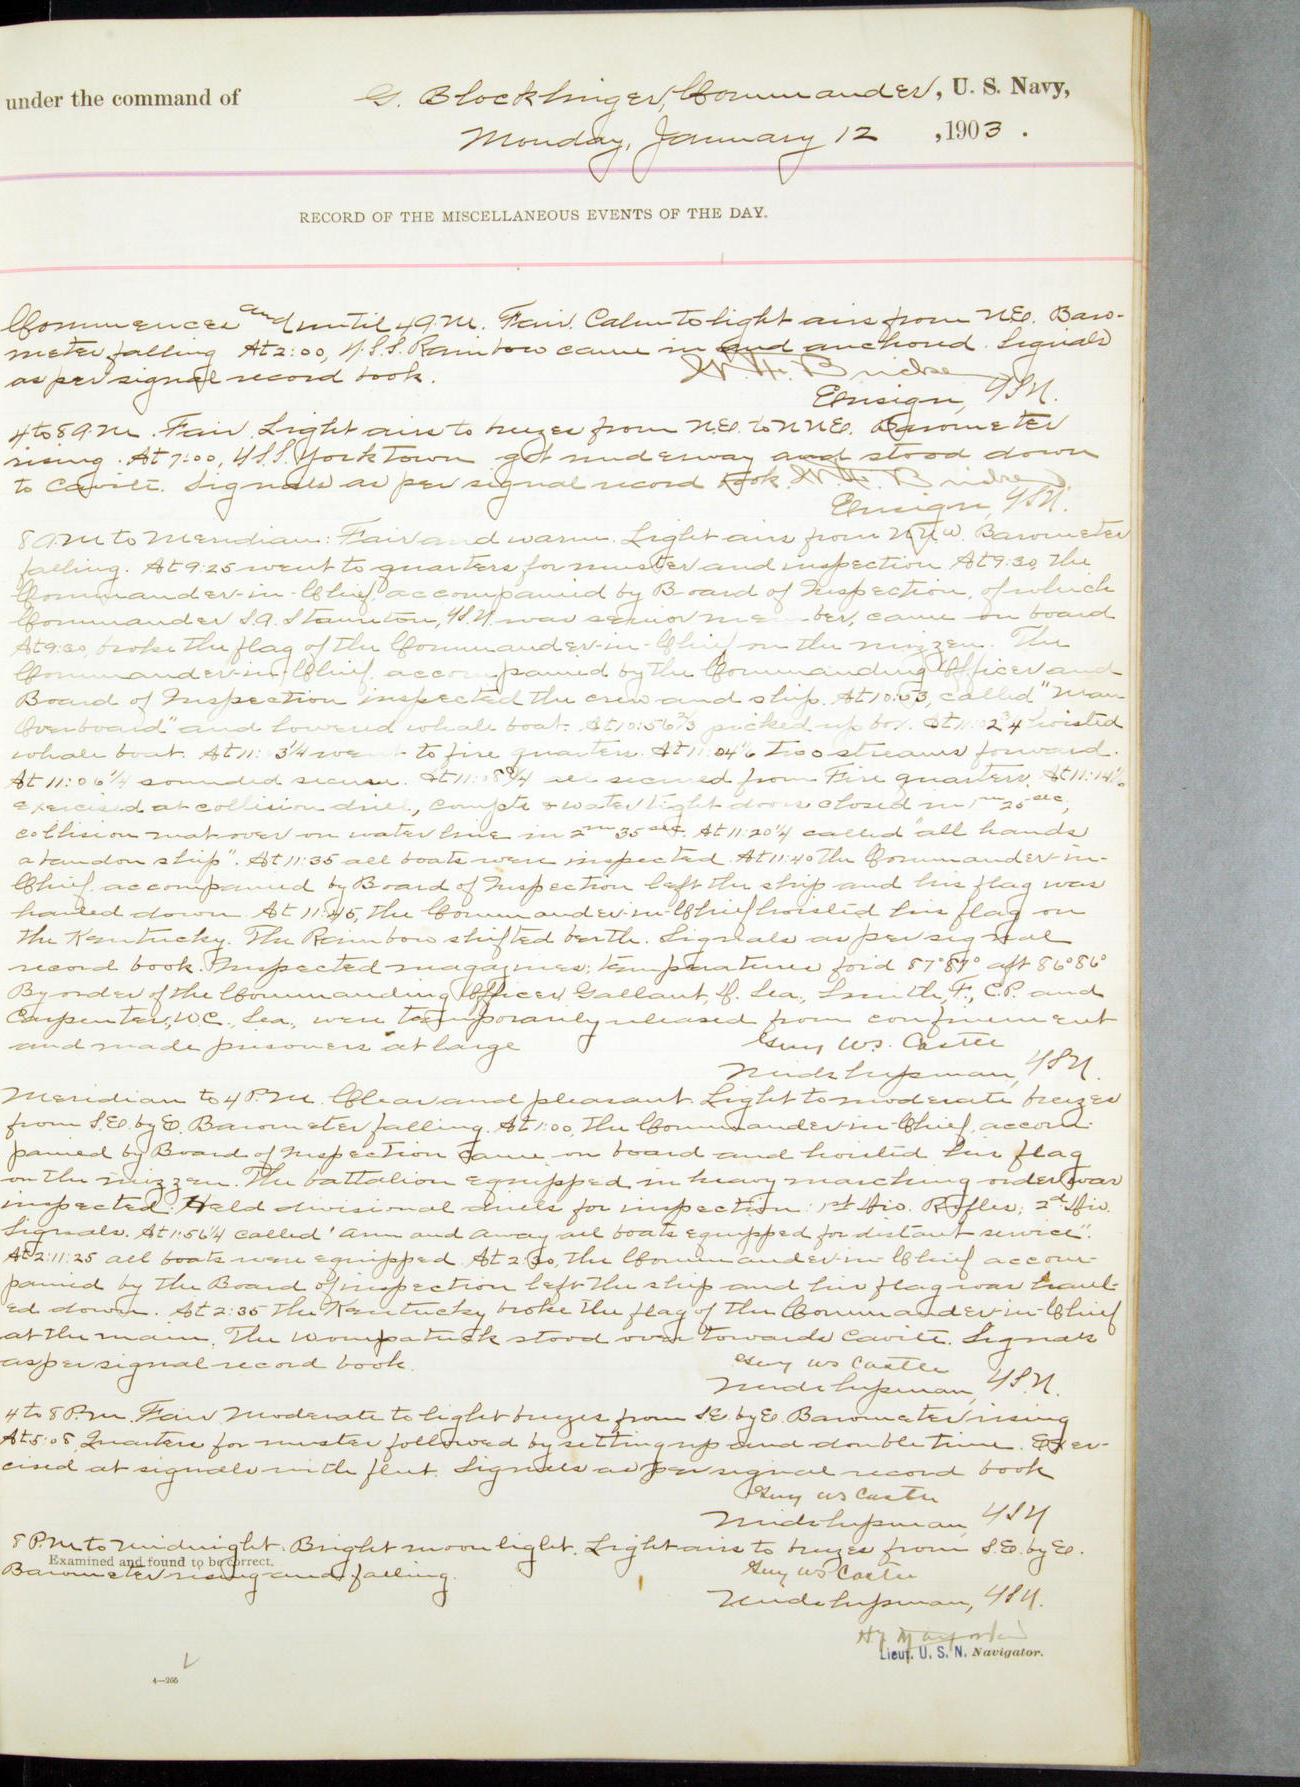 under the command of G. Blocklinger, Commander, U. S. Navy,
Monday, January 12, 1903.
RECORD OF THE MISCELLANEOUS EVENTS OF THE DAY.
Commences and until 4 A.M. Fair. Calm to light airs from NE. Baro-
meter falling At 2:00, U.S.S. Rainbow came in and anchored. Signals
as per signal record book.
Ensign, USN.
4 to 8 A.M. Fair. Light airs to breezes from N.E. to NNE. Barometer
rising. At 7:00, U.S.S. Yorktown got underway and stood down
to Cavite. Signals as per signal record book.
Ensign, USN.
8 A.M to Meridian: Fair and warm. Light airs from NNW. Barometer
falling. At 9:25 went to quarters for muster and inspection At 9:30, the
Commander-in-Chief, accompanied by Board of Inspection, of which
Commander S.A. Staunton, USN. was senior member, came on board
At 9:30, broke the flag of the Commander-in-Chief on the mizzen. The
Commander-in-Chief, accompanied by the Commanding Officer and
Board of Inspection inspected the crew and ship. At 10:53, called "Man
Overboard" and lowered whale boat. At 10:56 2/3 picked up boy. At 11: hoisted
whale boat. At 11: 3 1/4 went to fire quarters. At 11:04 1/6 two streams forward.
At 11:06 1/4 sounded secure. At 11:08 3/4 all secured from Fire quarters. At 11:14
exercised at collision drill, compts & water tight doors closed in 1m 25 sec,
collision mat over on water line in 2m 35 sec. At 11:20 1/4 called "all hands
abandon ship". At 11:35 all boats were inspected. At 11:40 the Commander-in-
Chief, accompanied by Board of Inspection left the ship and his flag was
hauled down At 11:45, the Commander-in-Chief hoisted his flag on
the Kentucky. The Rainbow shifted berth. Signals as per signal
record book. Inspected magazines; temperatures for'd 87° 87° aft 86° 86°
By order of the Commanding Officer Gallant, Sea., Smith, F., C.P. and
Carpenter, W.C., Sea., were temporarily released from confinement
and made prisoners at large
Guy W.S. Castle
Midshipman, USN.
Meridian to 4 P.M. Clear and pleasant. Light to moderate breezes
from S.E. by E. Barometer falling. At 1:00, the Commander-in-Chief, accom-
panied by Board of Inspection came on board and hoisted his flag
on the mizzen. The battalion equipped in heavy marching order was
inspected. Held divisional drills for inspection: 1st Div. Rifles; 2d Div.
Signals. At 1:56 1/4 called "Arm and away all boats equipped for distant service".
At 2:11:25 all boats were equipped. At 2:30, the Commander-in-Chief accom-
panied by the Board of inspection left the ship and his flag was haul-
ed down. At 2:35 the Kentucky broke the flag of the Commander-in-Chief
at the main. The Wompatuck stood over towards Cavite. Signals
as per signal record book.
Guy WS Castle
Midshipman, USN.
4 to 8 P.M. Fair Moderate to light breezes from SE by E. Barometer rising
At 5:05, Quarters for muster followed by setting up and double time. Exer-
cised at signals with fleet. Signals as per signal record book
Guy WS Castle
Midshipman, USN
8 P.M. to Midnight. Bright moonlight. Light airs to breezes from S.E. by E.
Examined and found to be correct.
Barometer rising and falling.
Guy WS Castle
Midshipman, USN.
Lieut. U. S. N. Navigator.